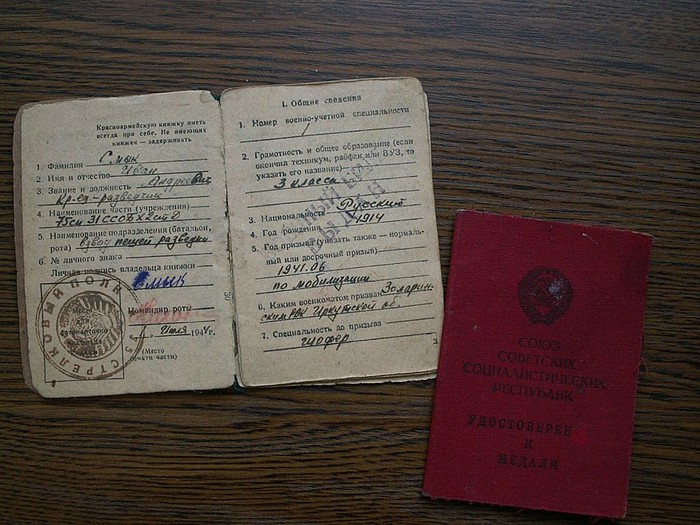 Красноармейскую книжку иметь
всегда при себе. Не имеющих
книжек — задерживать
1. Фамилия Смык
2. Имя и отчество Иван
3. Звание и должность Андреевич
кр-ец-разведчик
4. Наименование части (учреждения)
75сп 31ССОБХ2стд
5. Наименование подразделения (батальон,
рота) взвод пешей разведки
6. № личного знака
Личная подпись владельца книжки
Смык
Командир роты
Июля 194
(Место
печати части)
СТРЕЛКОВЫЙ ПОЛК
I. Общие сведения
1. Номер военно-учетной специальности
2. Грамотность и общее образование (если
окончил техникум, рабфак или ВУЗ, то
указать его название)
3 класса
3. Национальность Русский
4. Год рождения 1914
5. Год призыва (указать также — нормаль-
ный или досрочный призыв)
1941.06
по мобилизации
6. Каким военкоматом призван Заларин-
ским РВК Иркутской об.
7. Специальность до призыва
шофер
СОЮЗ
СОВЕТСКИХ
СОЦИАЛИСТИЧЕСКИХ
РЕСПУБЛИК
УДОСТОВЕРЕН
К
МЕДАЛИ